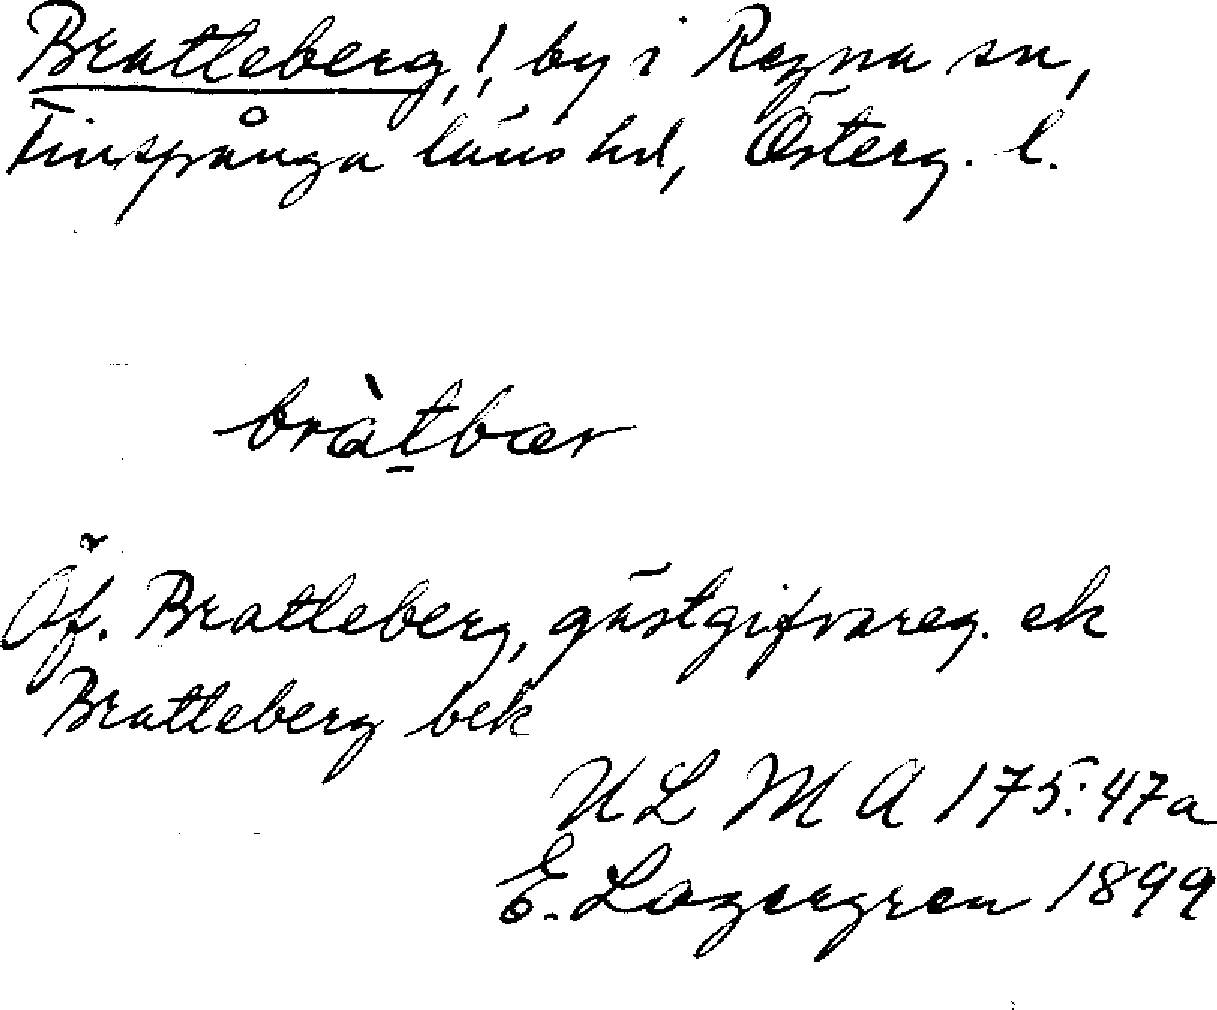 Bratteberg,! by i Regna sn,
Finspånga läns hd, Österg. l.
bràt̠bær
Öf. Bratteberg, gästgifvareg. ek
Bratteberg bek
ULMA 175:47a
E. Lagergren 1899